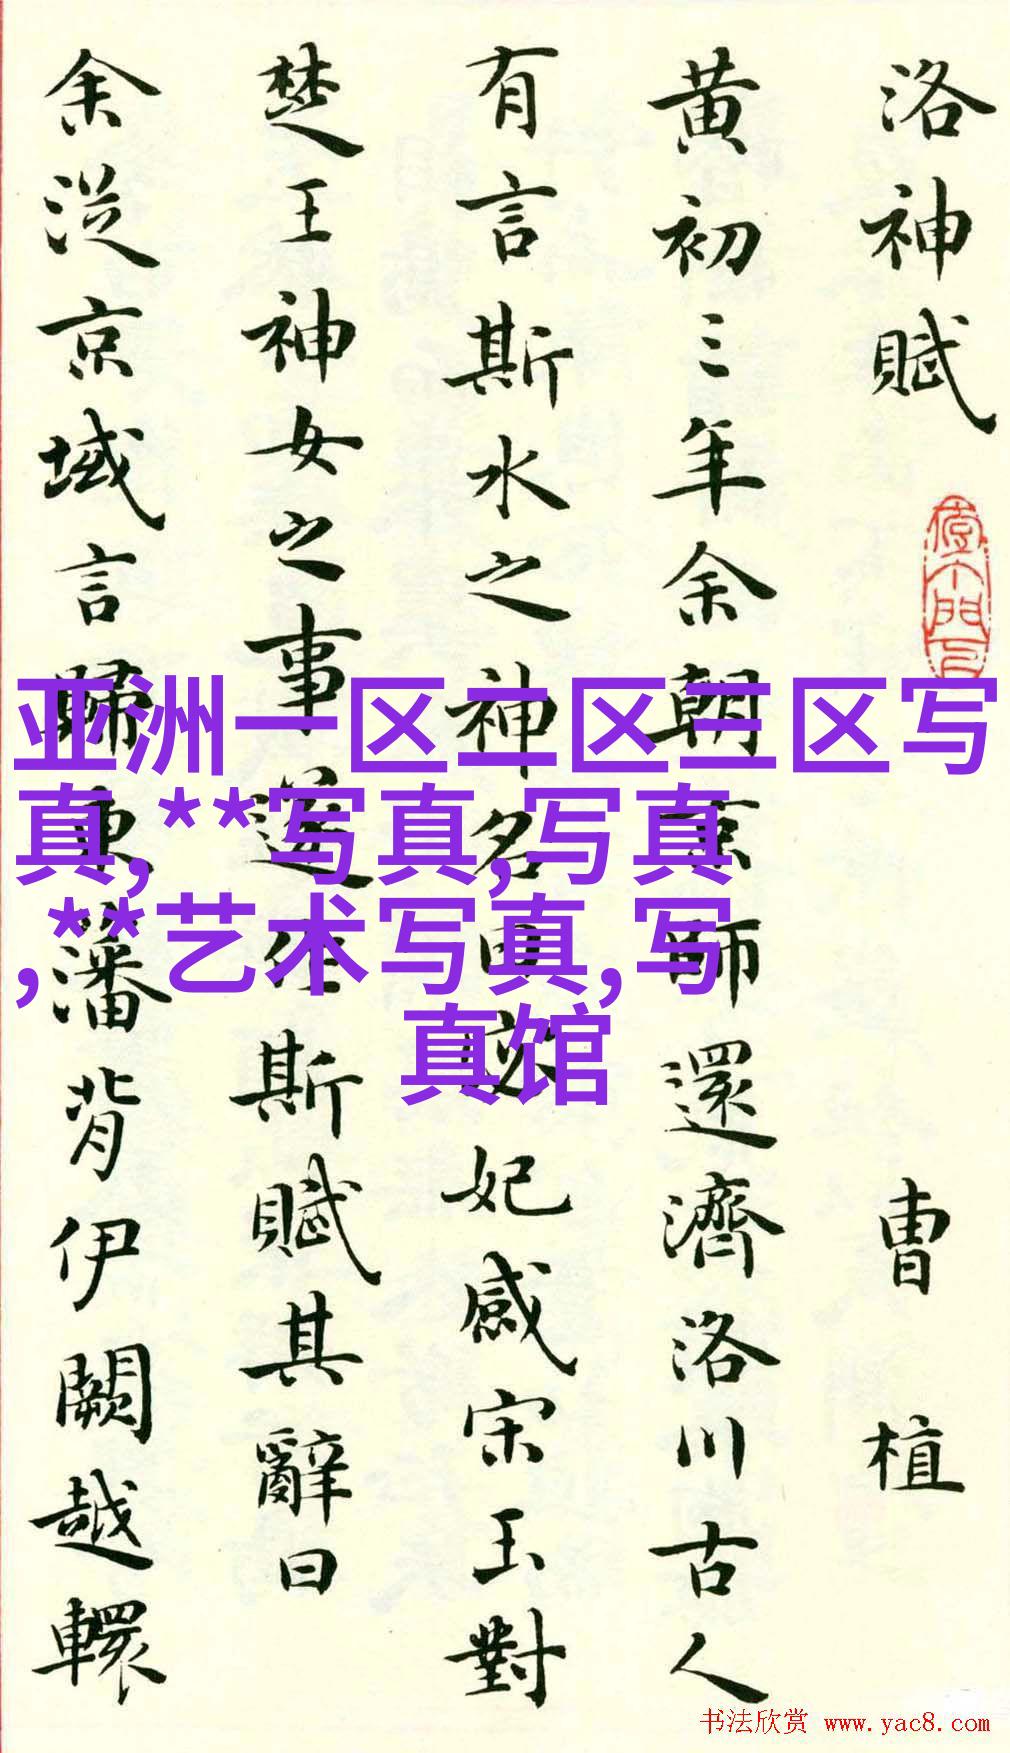 洛神賦
曹植
黄初三年余朝京師還濟洛川古人
有言斯水之神名曰宓妃感宋玉對
楚王神女之事遂作斯賦其辭曰
余從京域言歸東藩背伊闕越轘
亚洲一区二区三区写
真,**写真,写真
,**艺术写真,写
真馆
书法欣赏 www.yac8.com